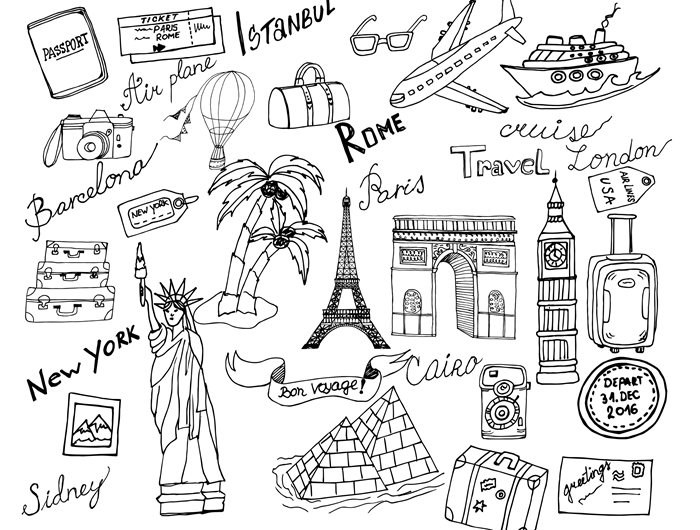 PASSPORT
TICKET
PARIS
ROME
ISTANBUL
Air plane
ROME
cruise
Travel
London
AIR LINES
USA
Barcelona
NEW YORK
Paris
NEW YORK
Bon Voyage!
CAIRO
DEPART
31.DEC
2016
Sidney
greetings